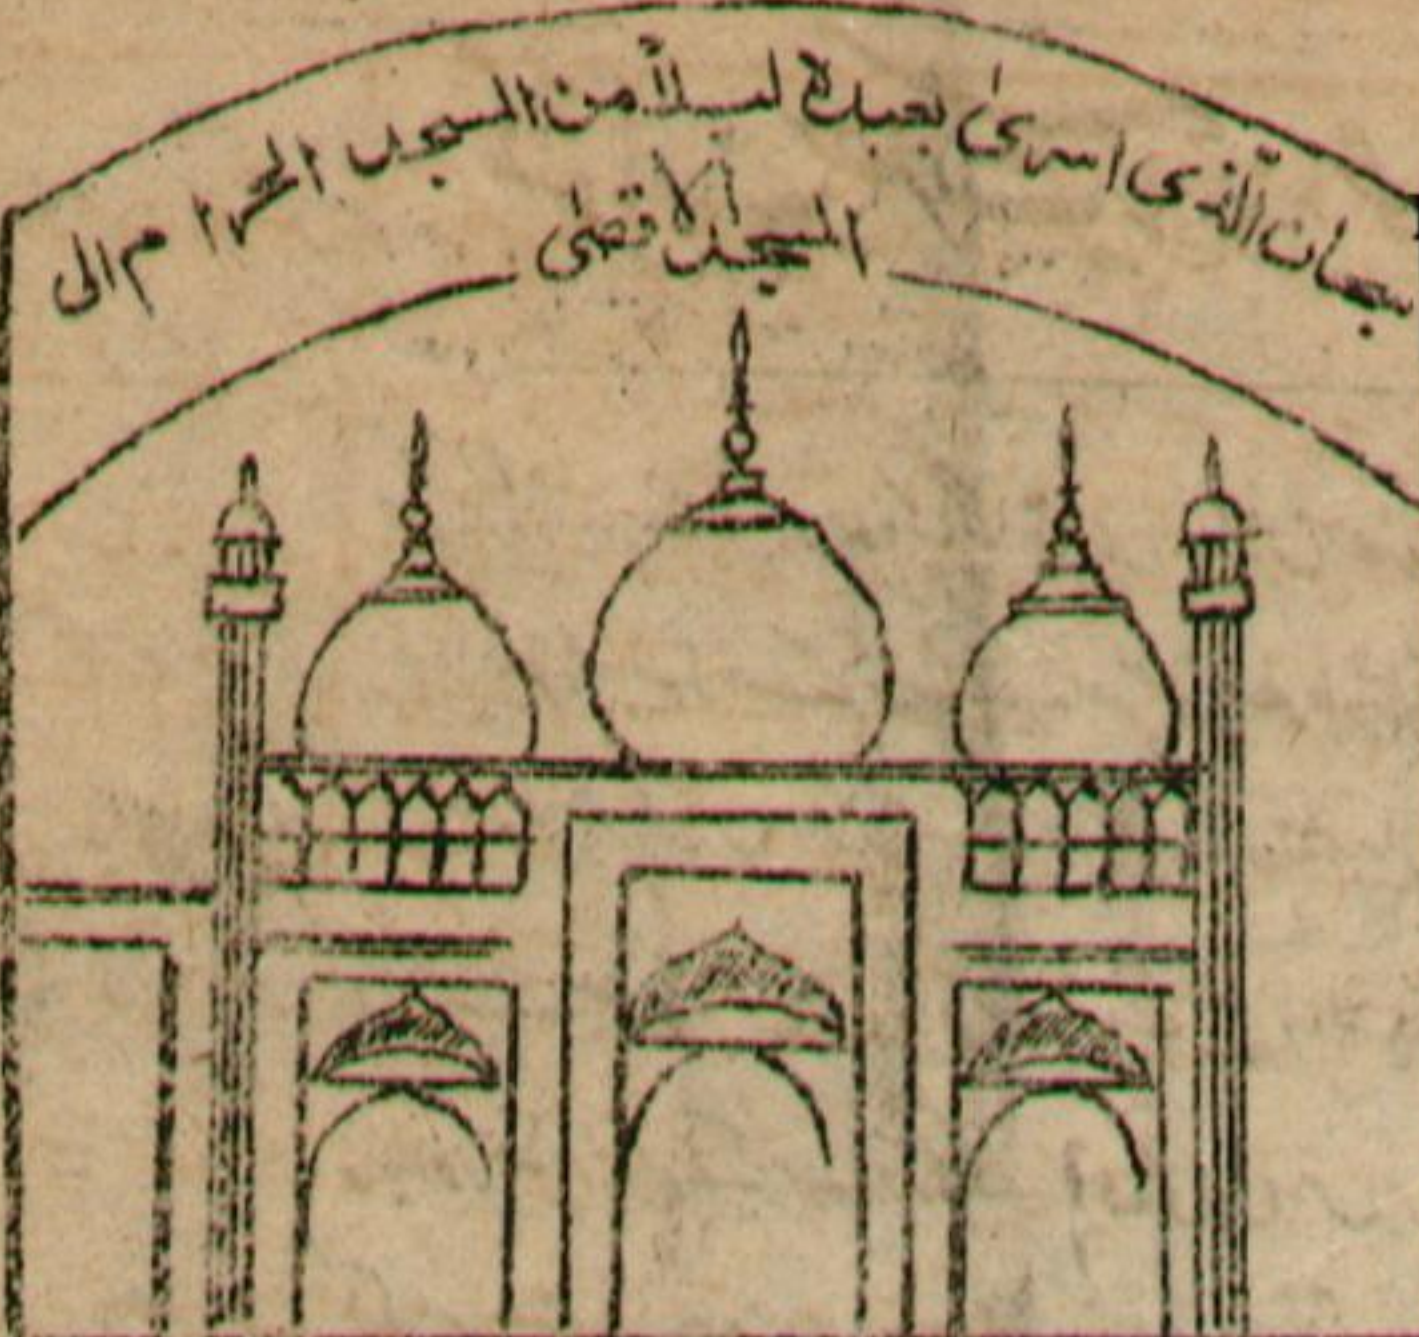 سبحان الّذی اسریٰ بعبدہ لیلاً من المسجد الحرام الی
المسجد الاقصٰی